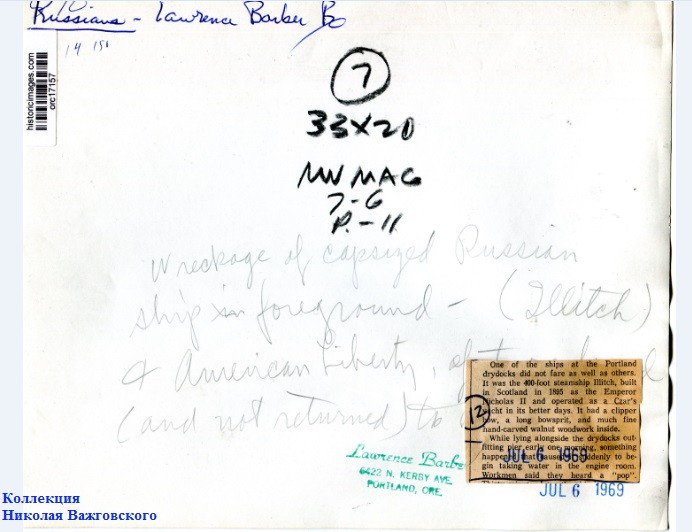 Russians - Lawrence Barber
14 151
historicimages.com
orc17157
7
33x20
NW MAG
7-6
P.-11
Wreckage of capsized Russian
ship in foreground - (Illitch)
& American Liberty,
(and not returned) to
One of the ships at the Portland
drydocks did not fare as well as others.
It was the 400-foot steamship Illitch, built
in Scotland in 1895 as the Emperor
Nicholas II and operated as a Czar's
yacht in its better days. It had a clipper
bow, a long bowsprit, and much fine
hand-carved walnut woodwork inside.
While lying alongside the drydocks out-
fitting pier early one morning, something
happened suddenly to be-
gin taking water in the engine room.
Workmen said they heard a "pop".
12
JUL 6 1969
JUL 6 1969
Lawrence Barber
6422 N. KERBY AVE.
PORTLAND, ORE.
Коллекция
Николая Важговского